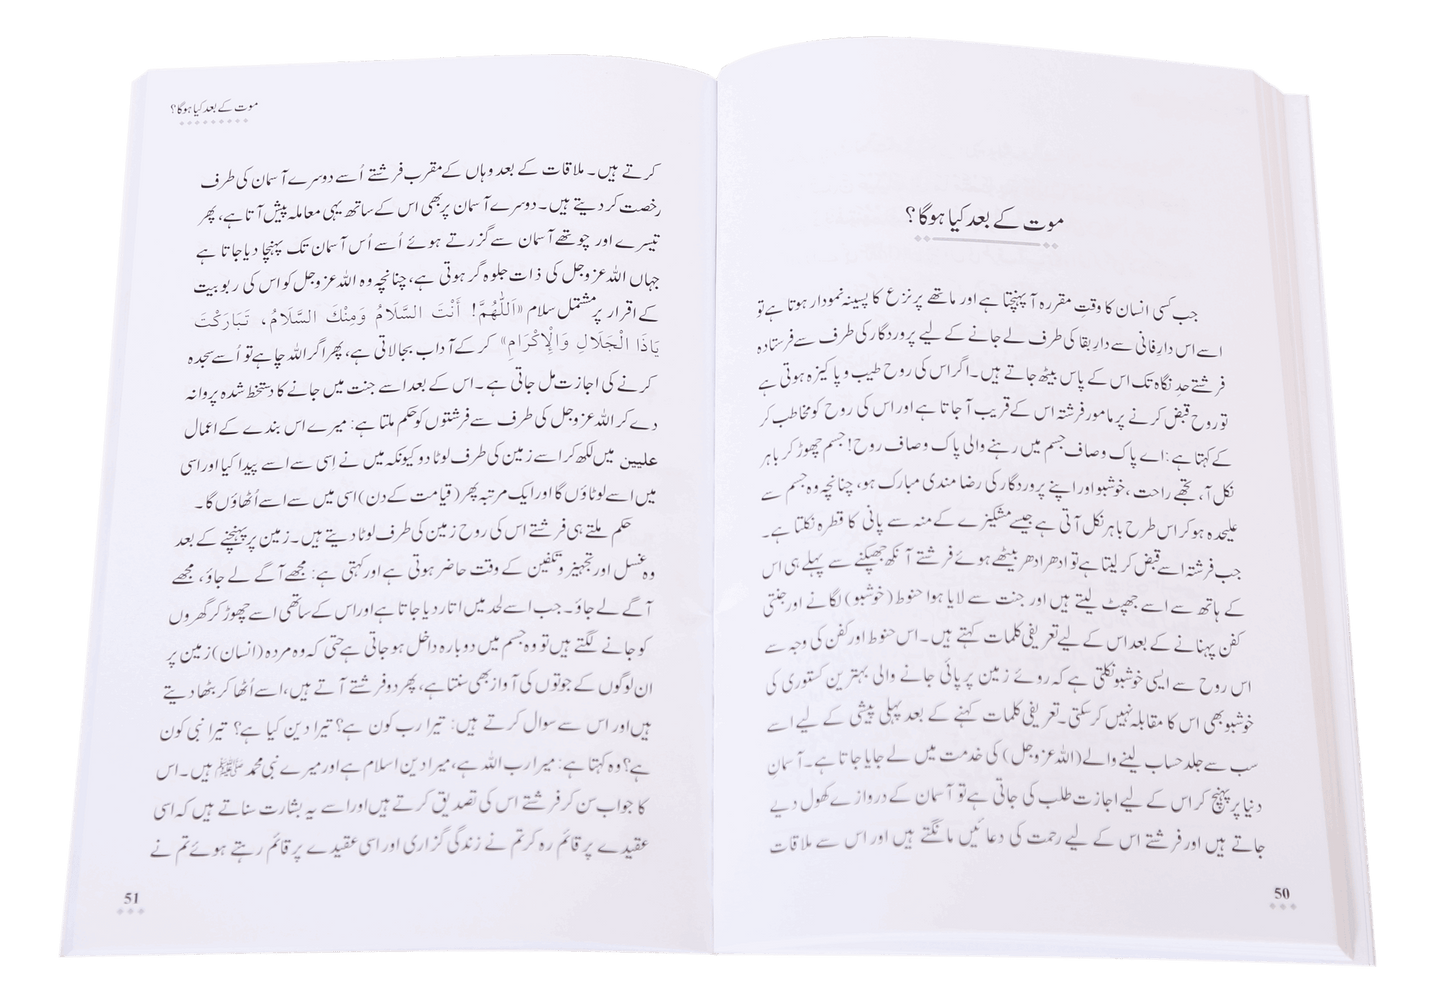 موت کے بعد کیا ہوگا؟
جب کسی انسان کا وقتِ مقررہ آ پہنچتا ہے اور ماتھے پر نزع کا پسینہ نمودار ہوتا ہے تو
اسے اس دارِ فانی سے دارِ بقا کی طرف لے جانے کے لیے پروردگار کی طرف سے فرستادہ
فرشتے حدِ نگاہ تک اس کے پاس بیٹھ جاتے ہیں۔ اگر اس کی روح طیب و پاکیزہ ہوتی ہے
تو روح قبض کرنے پر مامور فرشتہ اس کے قریب آ جاتا ہے اور اس کی روح کو مخاطب کر
کے کہتا ہے: اے پاک و صاف جسم میں رہنے والی پاک و صاف روح! جسم چھوڑ کر باہر
نکل آ، تجھے راحت، خوشبو اور اپنے پروردگار کی رضا مندی مبارک ہو، چنانچہ وہ جسم سے
علیحدہ ہو کر اس طرح باہر نکل آتی ہے جیسے مشکیزے کے منہ سے پانی کا قطرہ نکلتا ہے۔
جب فرشتہ اسے قبض کر لیتا ہے تو ادھر ادھر بیٹھے ہوئے فرشتے آنکھ جھپکنے سے پہلے ہی اس
کے ہاتھ سے اسے جھپٹ لیتے ہیں اور جنت سے لایا ہوا حنوط (خوشبو) لگانے اور جنتی
کفن پہنانے کے بعد اس کے لیے تعریفی کلمات کہتے ہیں۔ اس حنوط اور کفن کی وجہ سے
اس روح سے ایسی خوشبو نکلتی ہے کہ روئے زمین پر پائی جانے والی بہترین کستوری کی
خوشبو بھی اس کا مقابلہ نہیں کر سکتی۔ تعریفی کلمات کہنے کے بعد پہلی پیشی کے لیے اسے
سب سے جلد حساب لینے والے (اللہ عزوجل) کی خدمت میں لے جایا جاتا ہے۔ آسمانِ
دنیا پر پہنچ کر اس کے لیے اجازت طلب کی جاتی ہے تو آسمان کے دروازے کھول دیے
جاتے ہیں اور فرشتے اس کے لیے رحمت کی دعائیں مانگتے ہیں اور اس سے ملاقات
50
موت کے بعد کیا ہوگا؟
کرتے ہیں۔ ملاقات کے بعد وہاں کے مقرب فرشتے اُسے دوسرے آسمان کی طرف
رخصت کر دیتے ہیں۔ دوسرے آسمان پر بھی اس کے ساتھ یہی معاملہ پیش آتا ہے، پھر
تیسرے اور چوتھے آسمان سے گزرتے ہوئے اُسے اُس آسمان تک پہنچا دیا جاتا ہے
جہاں اللہ عزوجل کی ذات جلوہ گر ہوتی ہے، چنانچہ وہ اللہ عزوجل کو اس کی ربوبیت
کے اقرار پر مشتمل سلام «اَللّٰهُمَّ! أَنْتَ السَّلَامُ وَمِنْكَ السَّلَامُ، تَبَارَكْتَ
يَاذَا الْجَلَالِ وَالْإِكْرَامِ» کر کے آداب بجا لاتی ہے، پھر اگر اللہ چاہے تو اُسے سجدہ
کرنے کی اجازت مل جاتی ہے۔ اس کے بعد اسے جنت میں جانے کا دستخط شدہ پروانہ
دے کر اللہ عزوجل کی طرف سے فرشتوں کو حکم ملتا ہے: میرے اس بندے کے اعمال
علیین میں لکھ کر اسے زمین کی طرف لوٹا دو کیونکہ میں نے اسی سے اسے پیدا کیا اور اسی
میں اسے لوٹاؤں گا اور ایک مرتبہ پھر (قیامت کے دن) اسی میں سے اسے اُٹھاؤں گا۔
حکم ملتے ہی فرشتے اس کی روح زمین کی طرف لوٹا دیتے ہیں۔ زمین پر پہنچنے کے بعد
وہ غسل اور تجہیز و تکفین کے وقت حاضر ہوتی ہے اور کہتی ہے: مجھے آگے لے جاؤ، مجھے
آگے لے جاؤ۔ جب اسے لحد میں اتار دیا جاتا ہے اور اس کے ساتھی اسے چھوڑ کر گھروں
کو جانے لگتے ہیں تو وہ جسم میں دوبارہ داخل ہو جاتی ہے حتی کہ وہ مردہ (انسان) زمین پر
ان لوگوں کے جوتوں کی آواز بھی سنتا ہے، پھر دو فرشتے آتے ہیں، اسے اُٹھا کر بٹھا دیتے
ہیں اور اس سے سوال کرتے ہیں: تیرا رب کون ہے؟ تیرا دین کیا ہے؟ تیرا نبی کون
ہے؟ وہ کہتا ہے: میرا رب اللہ ہے، میرا دین اسلام ہے اور میرے نبی محمد ﷺ ہیں۔ اس
کا جواب سن کر فرشتے اس کی تصدیق کرتے ہیں اور اسے یہ بشارت سناتے ہیں کہ اسی
عقیدے پر قائم رہ کر تم نے زندگی گزاری اور اسی عقیدے پر قائم رہتے ہوئے تم نے
51